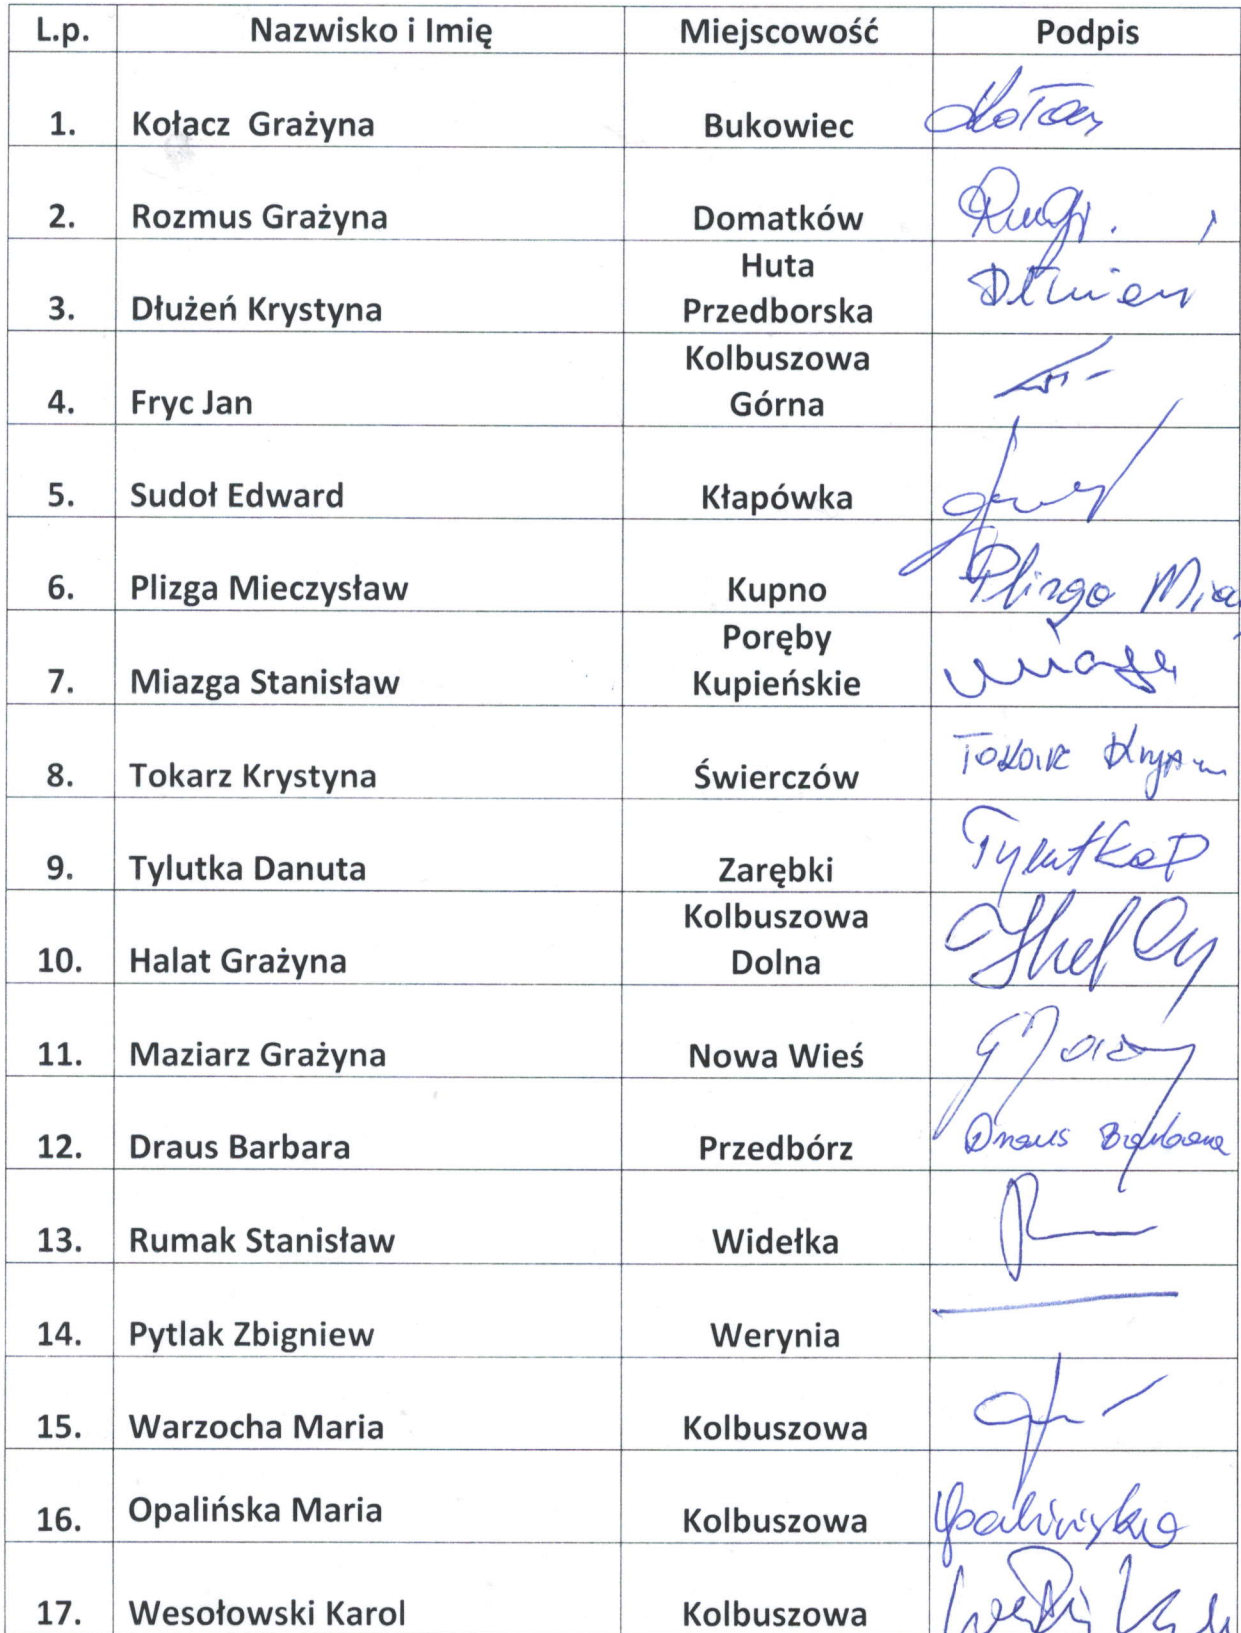 L.p. Nazwisko i Imię Miejscowość Podpis
1. Kołacz Grażyna Bukowiec
2. Rozmus Grażyna Domatków
Huta
3. Dłużeń Krystyna Przedborska
Kolbuszowa
4. Fryc Jan Górna
5. Sudoł Edward Kłapówka
6. Plizga Mieczysław Kupno Plizga
Poręby
7. Miazga Stanisław Kupieńskie
8. Tokarz Krystyna Świerczów Tokarz
9. Tylutka Danuta Zarębki Tylutka D
Kolbuszowa
10. Halat Grażyna Dolna
11. Maziarz Grażyna Nowa Wieś
12. Draus Barbara Przedbórz Draus Barbara
13. Rumak Stanisław Widełka
14. Pytlak Zbigniew Werynia
15. Warzocha Maria Kolbuszowa
16. Opalińska Maria Kolbuszowa Opalińska
17. Wesołowski Karol Kolbuszowa